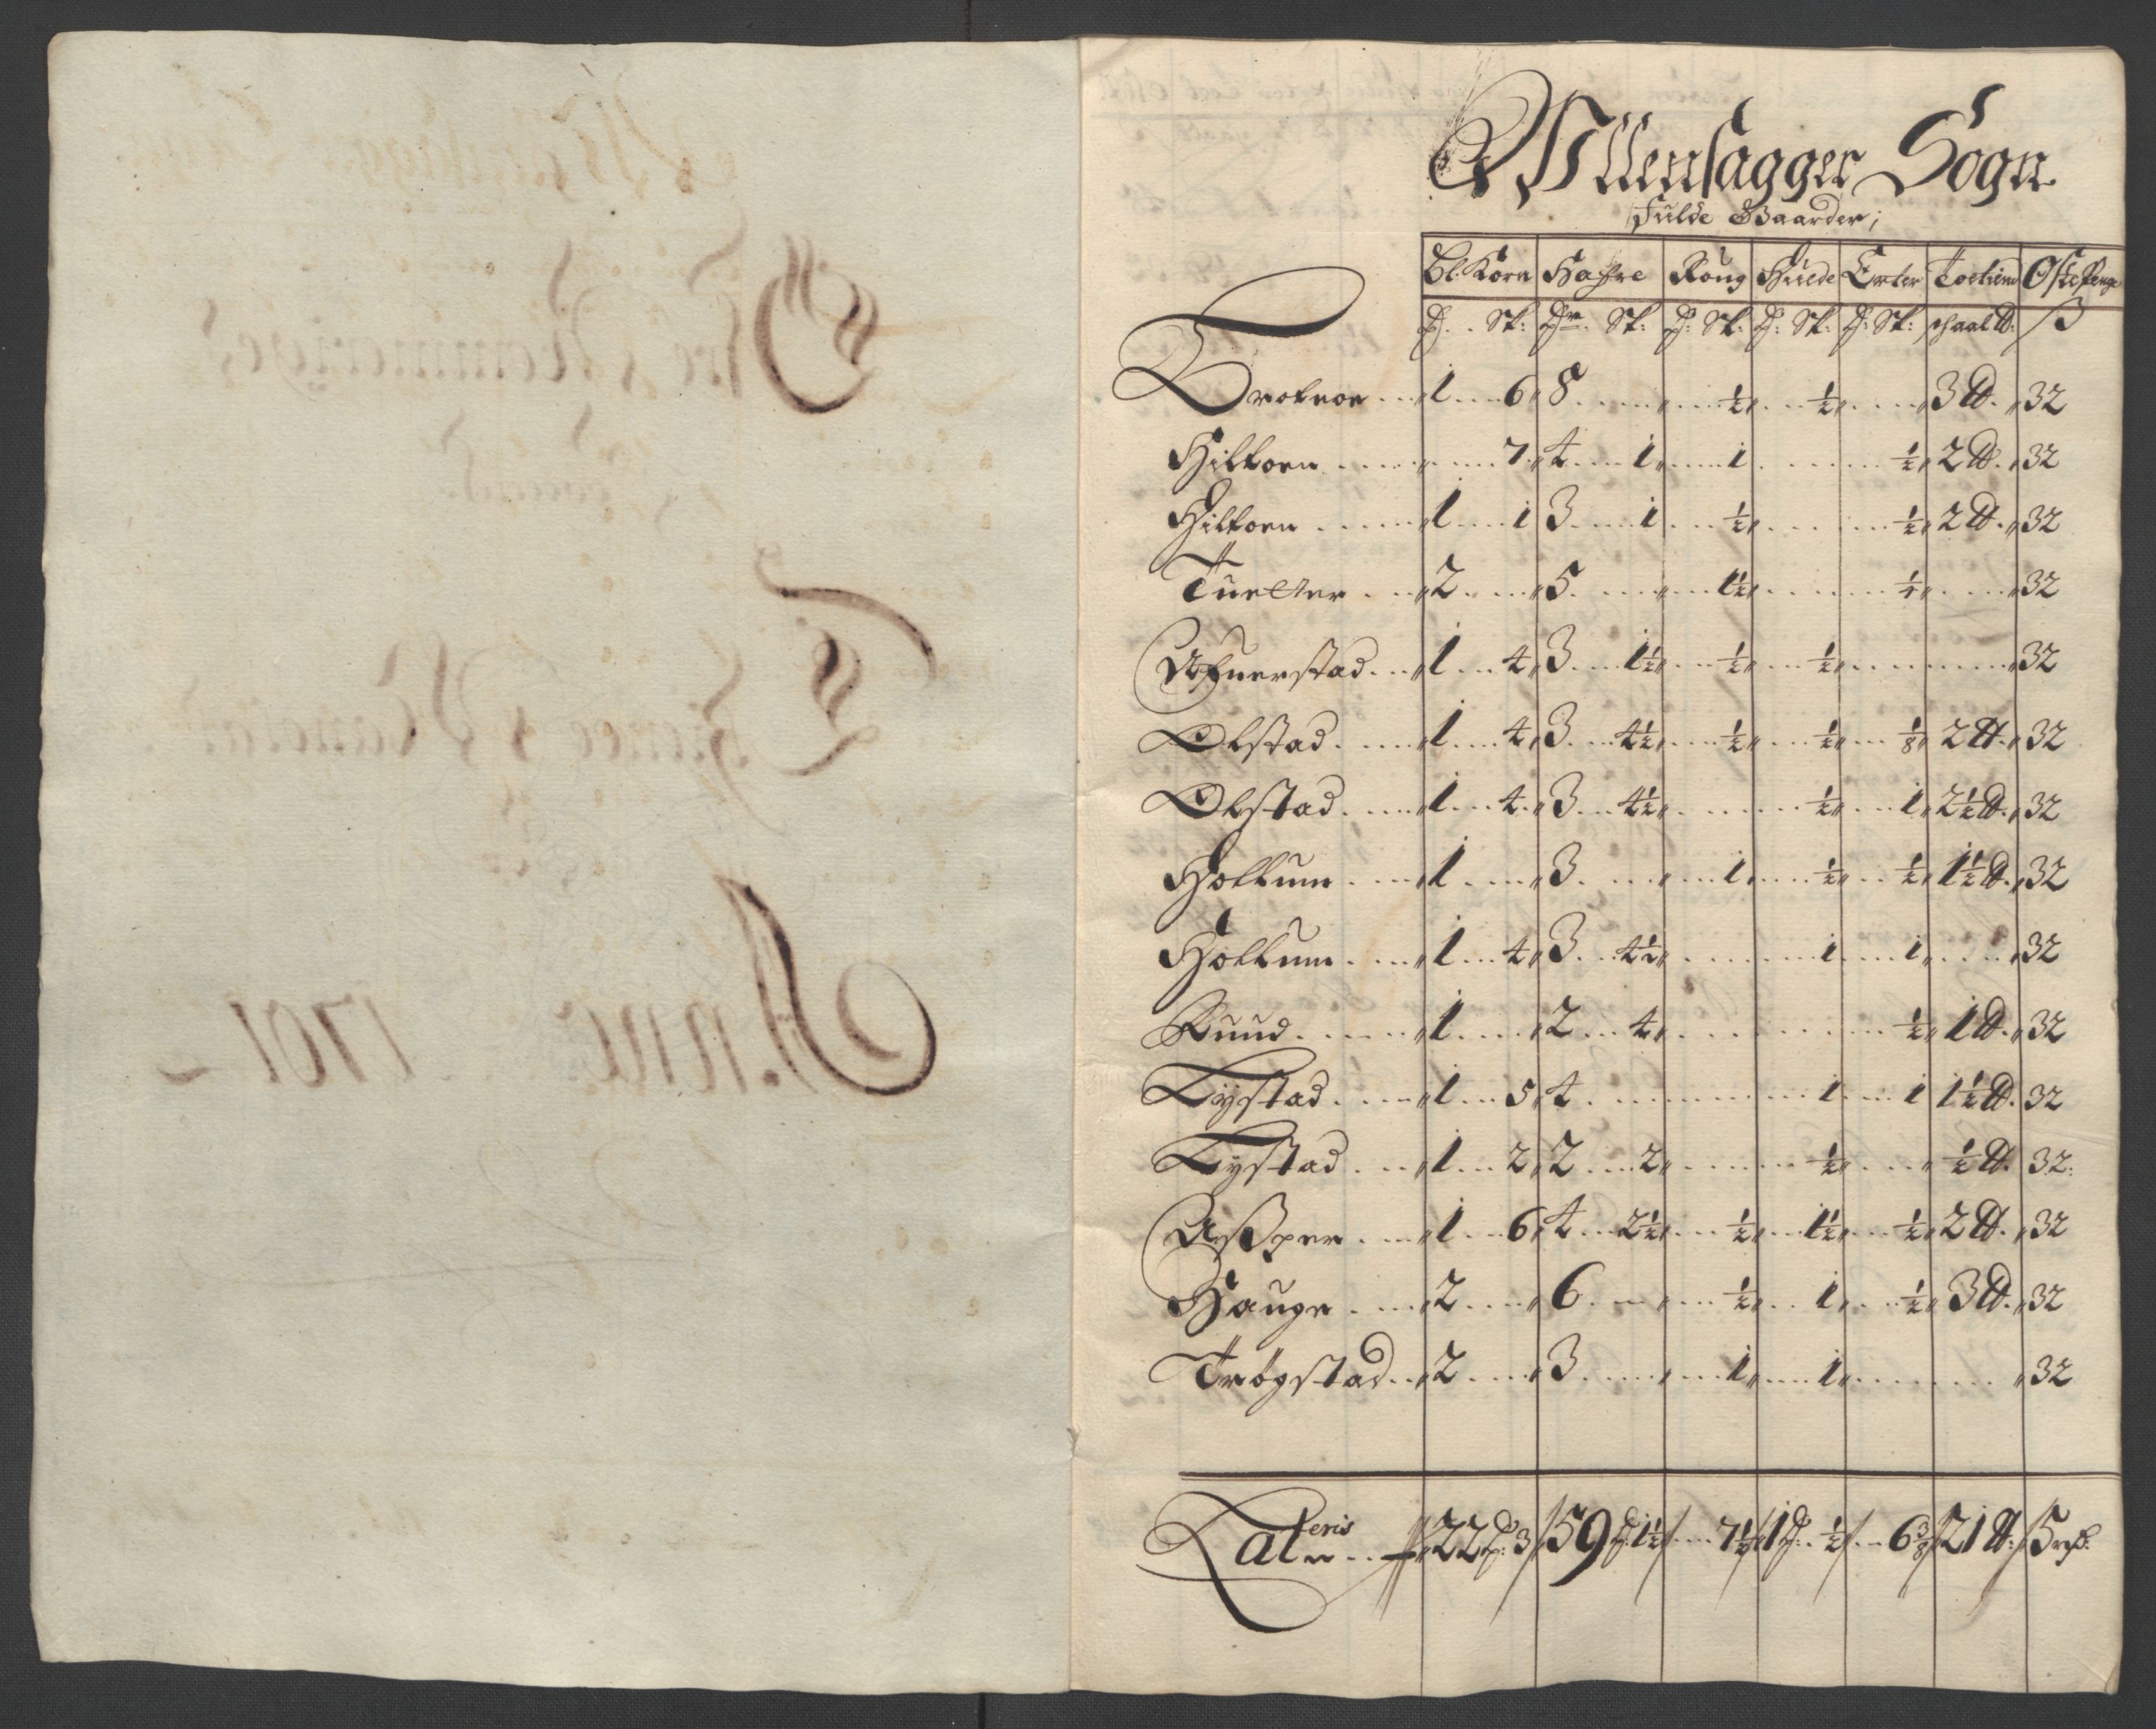 Ullensagger Sogn
Fulde Gaarder;
Bl: Korn Hafre Roug Huede Erter Toetiend Oste Penge
Sk: Sk: Sk: Sk: Sk: schaal ℔: ß
Brotnor 1 6 8 ½ ½ 3 ℔. 32
Hilton 7 4 1 1 ½ 2 ℔. 32
Hilton 1 1 3 1 ½ ½ 2 ℔. 32
Tuetter 2 5 1½ 32
Afuerstad 1 4 3 1½ ½ ½ 32
Olstad 1 4 3 4½ ½ ½ ⅛ 2 ℔. 32
Olstad 1 4 3 4½ ½ 1 2½ ℔. 32
Holkum 1 3 1 ½ ½ 1½ ℔. 32
Holkum 1 4 3 4½ 1 1 32
Ruud 1 2 4 ½ 1 ℔. 32
Lystad 1 5 4 1 1 1½ ℔. 32
Lystad 1 2 2 2 ½ ½ ℔. 32
Assper 1 6 4 2½ ½ 1½ ½ 2 ℔. 32
Hauge 2 6 ½ 1 ½ 3 ℔. 32
Trögstad 2 3 1 1 32
Lateris 22 3 59 1½ 7½ 1 ½ 6⅜ 21 ℔: 5
Anno 1701